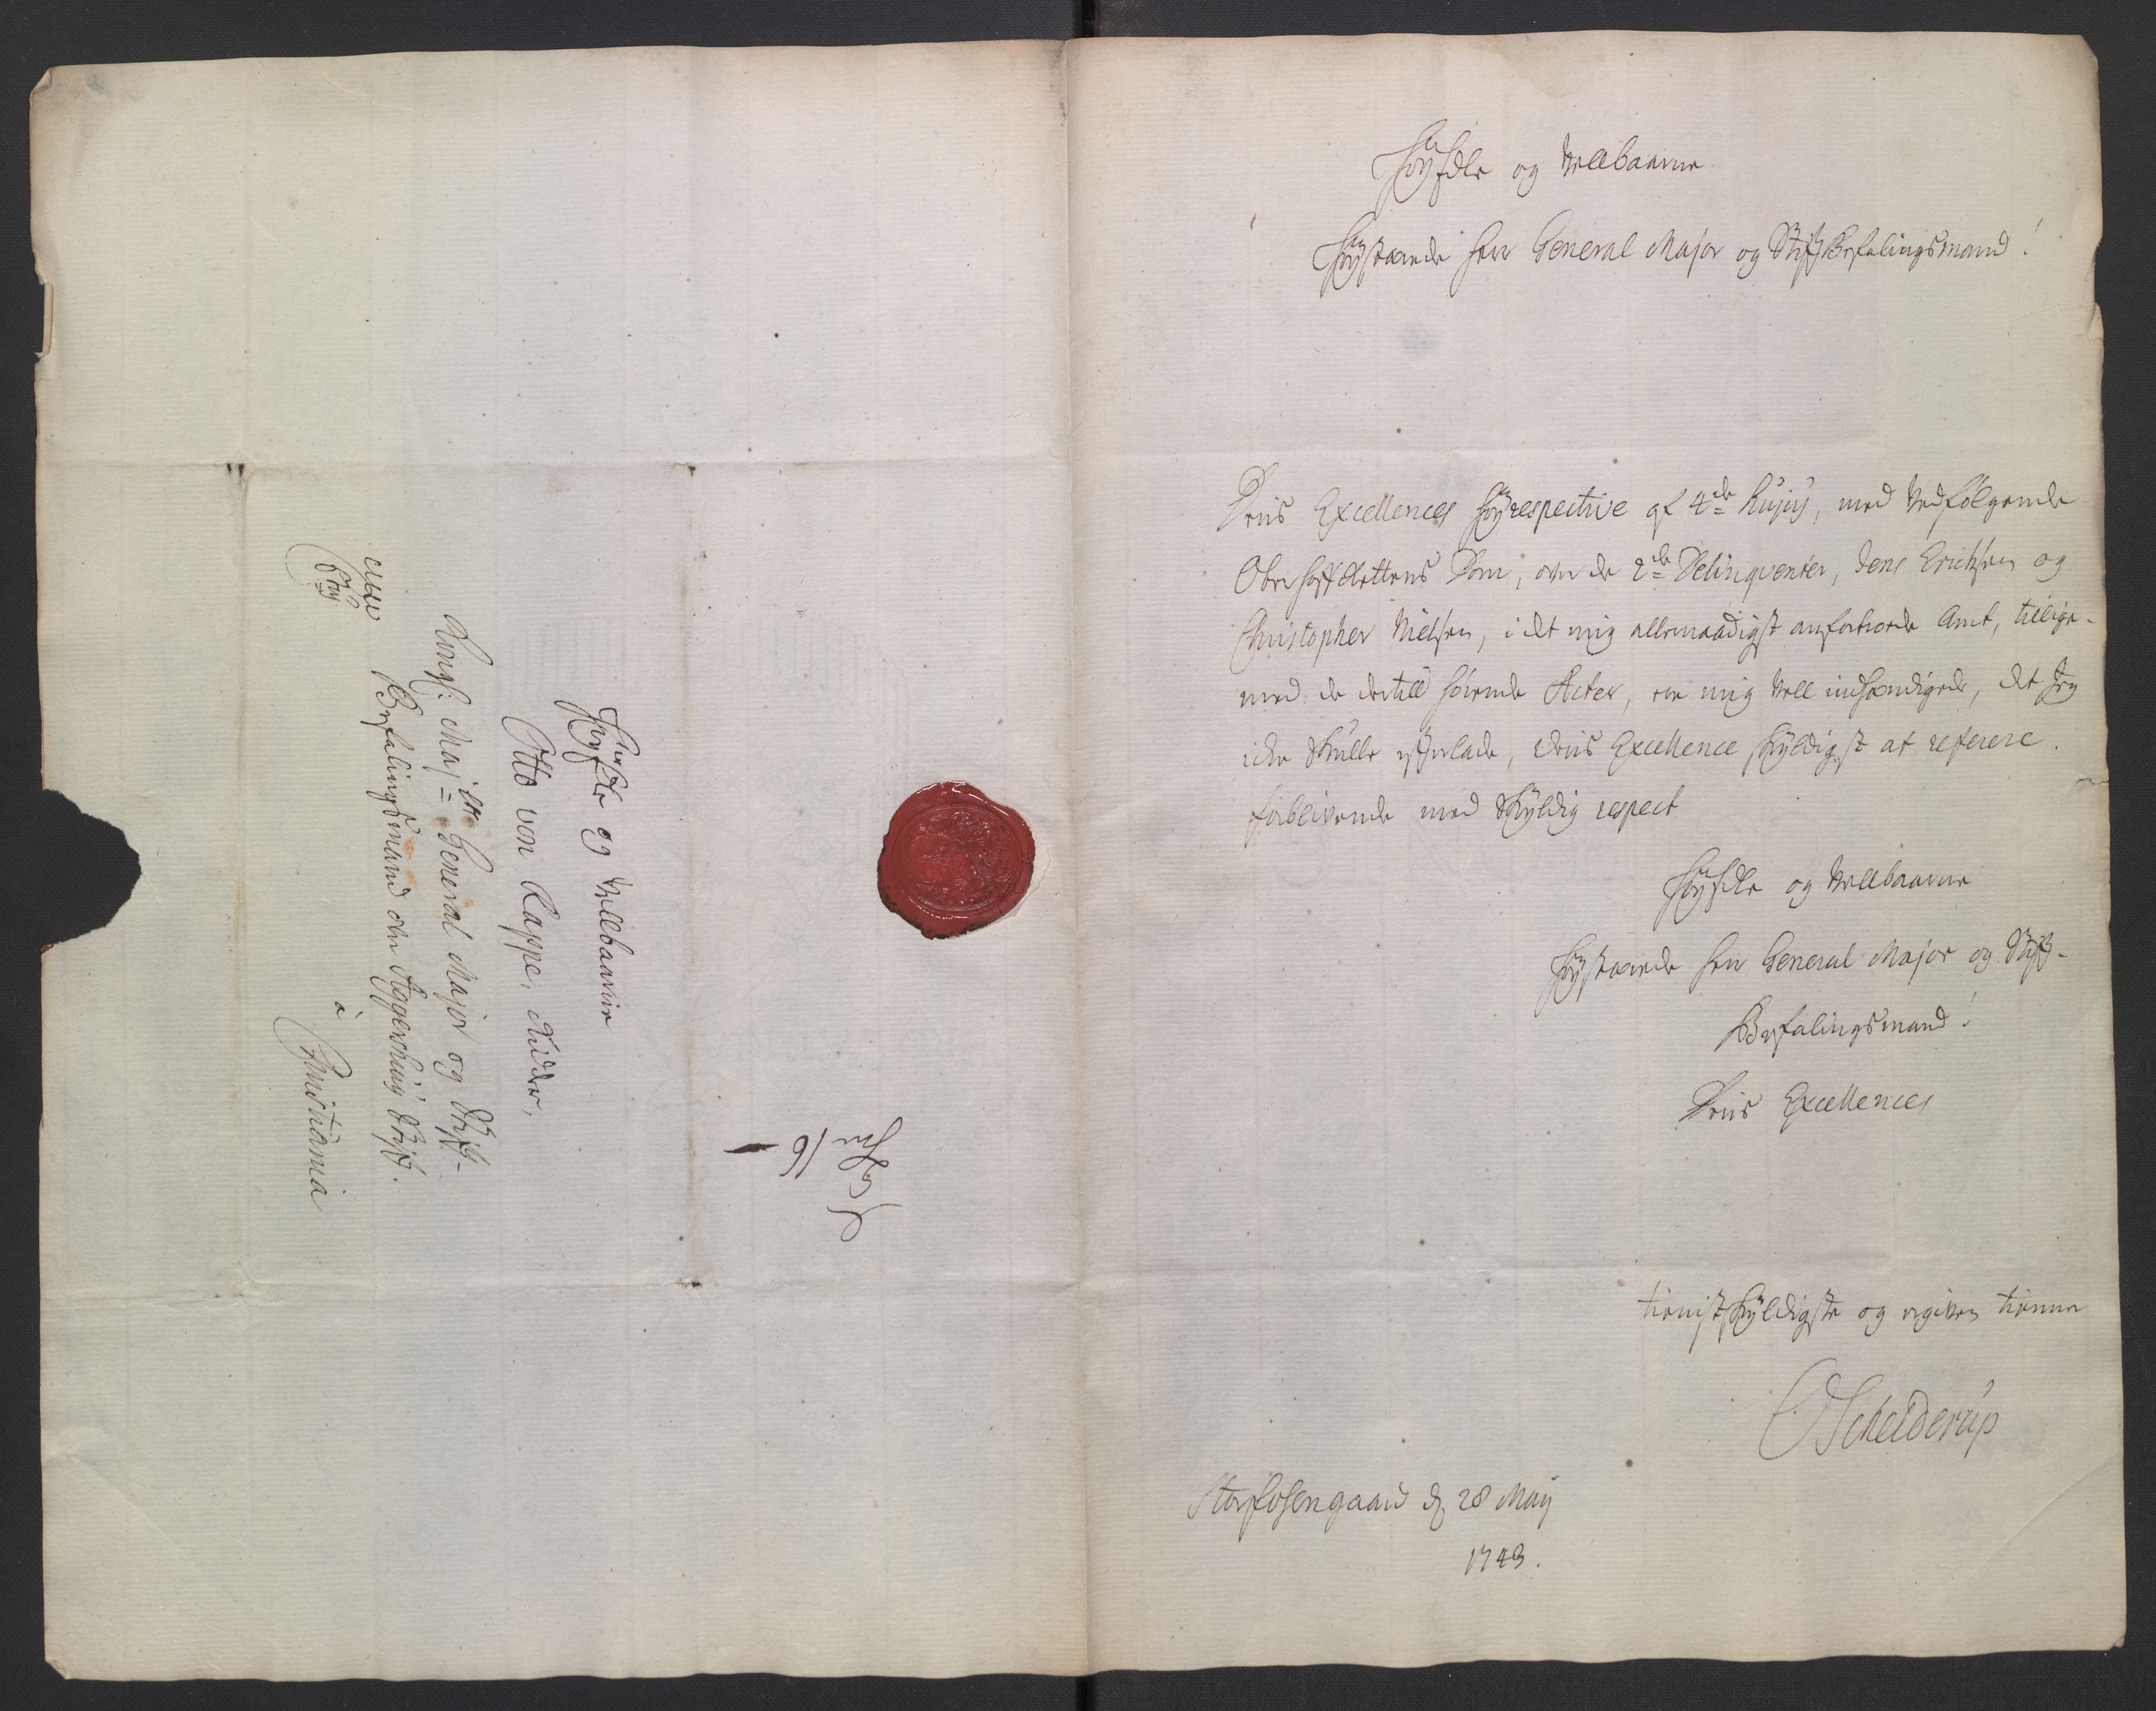 HøyEdle og Vellbaarne
Høystærede Herr General Major og StiftBefalingsmand!
Dens Excellences Høyrespective af 4de hujus, med Vedfølgende
OberHoffRettens Dom, over de 2de Delinqventer, Jens Erichsen og
Christopher Nielsen, i det mig allernaadigst anfortroede Amt, tillige-
med de dertill hørende Acter, ere mig Vell indhændigede, det Jeg
icke Skulle efterlade, Deris Excellence skyldigst at referere.
forblivende med Skyldig respect
HøyEdle og Vellbaarne
Høystærede Herr General Major og Stift-
Befalingsmand!
Deris Excellences
tienistskyldigste og ergiven tienner
OSchelderup
Storfosengaard d 28 Maij
1743.
HøyEdle og Vellbaarne
Otto von Rappe, Ridder,
Kongl: Maj=ts General Major og Stift-
Befalingsmand over Aggershuus Stift.
a
Christiania
16